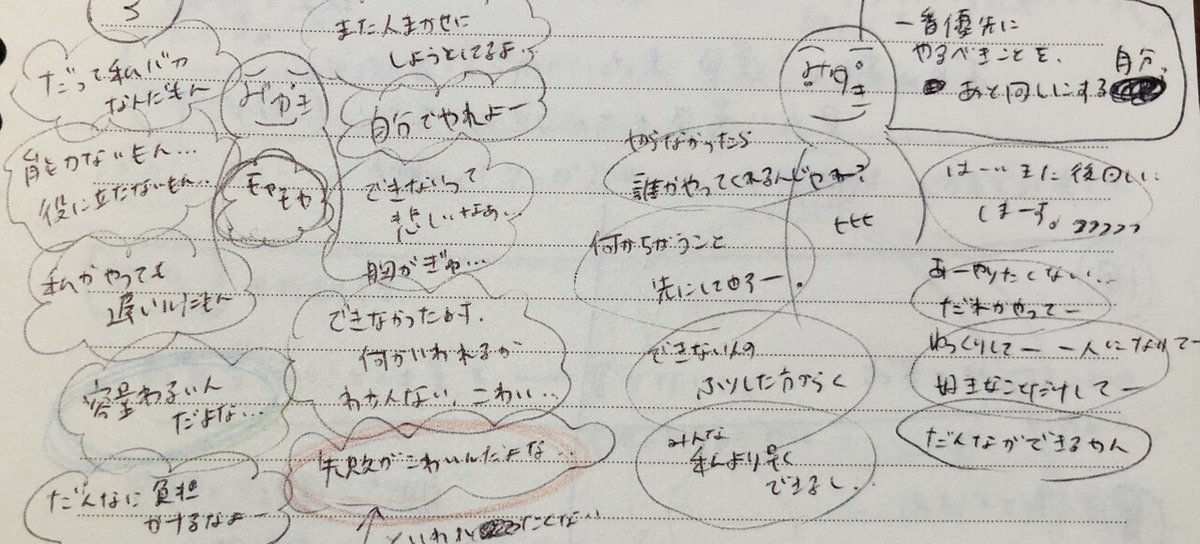 3
また人まかせに
しようとしてるよ
自分でやれよー
できないって
悲しいなぁ…
胸がぎゅ…
できなかったらす、
何かいわれるか
わかんない、こわい…
失敗がこわいんだよな…
だって私バカ
なんだもん
能力ないもん…
役に立たないもん…
私がやっても
遅いしだもん
容量わるいん
だよな…
だんなに負担
かけるなよー
みずき
モヤモヤ
みずき
一番優先に
やるべきことを、
あと回しにする
自分。
やらなかったら
誰かやってくれるんじゃね?
何かちがうこと
先にしてやろー。
できない人の
ふりした方がらく
みんな
私より早く
できるし、
はーいまた後回し
しまーす。
あーやりたくない…
だれかやってー
ゆっくりしてー 一人になりてー
好きなことだけしてー
だんなができるやん